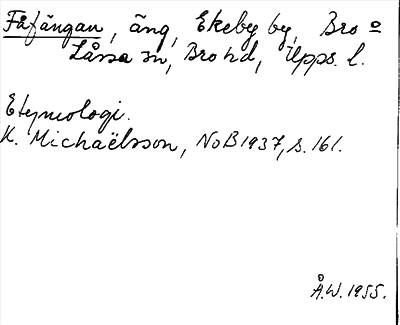 Fåfängan, äng, Ekeby by, Bro o
Låssa sn, Bro hd, Upps. l.
Etymologi.
K. Michaëlsson, NoB 1937, s. 161.
Å.W. 1955.